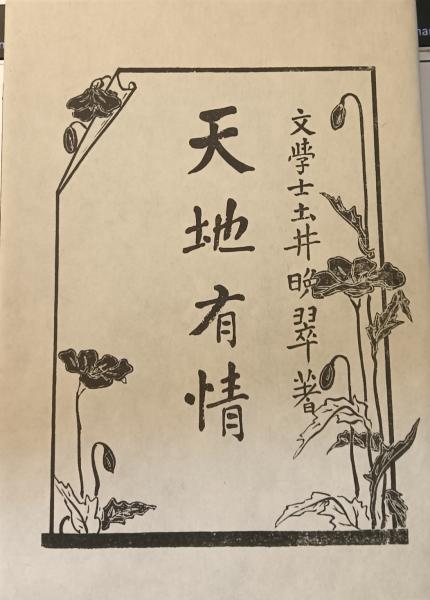 文學士土井晩翠著
天地有情